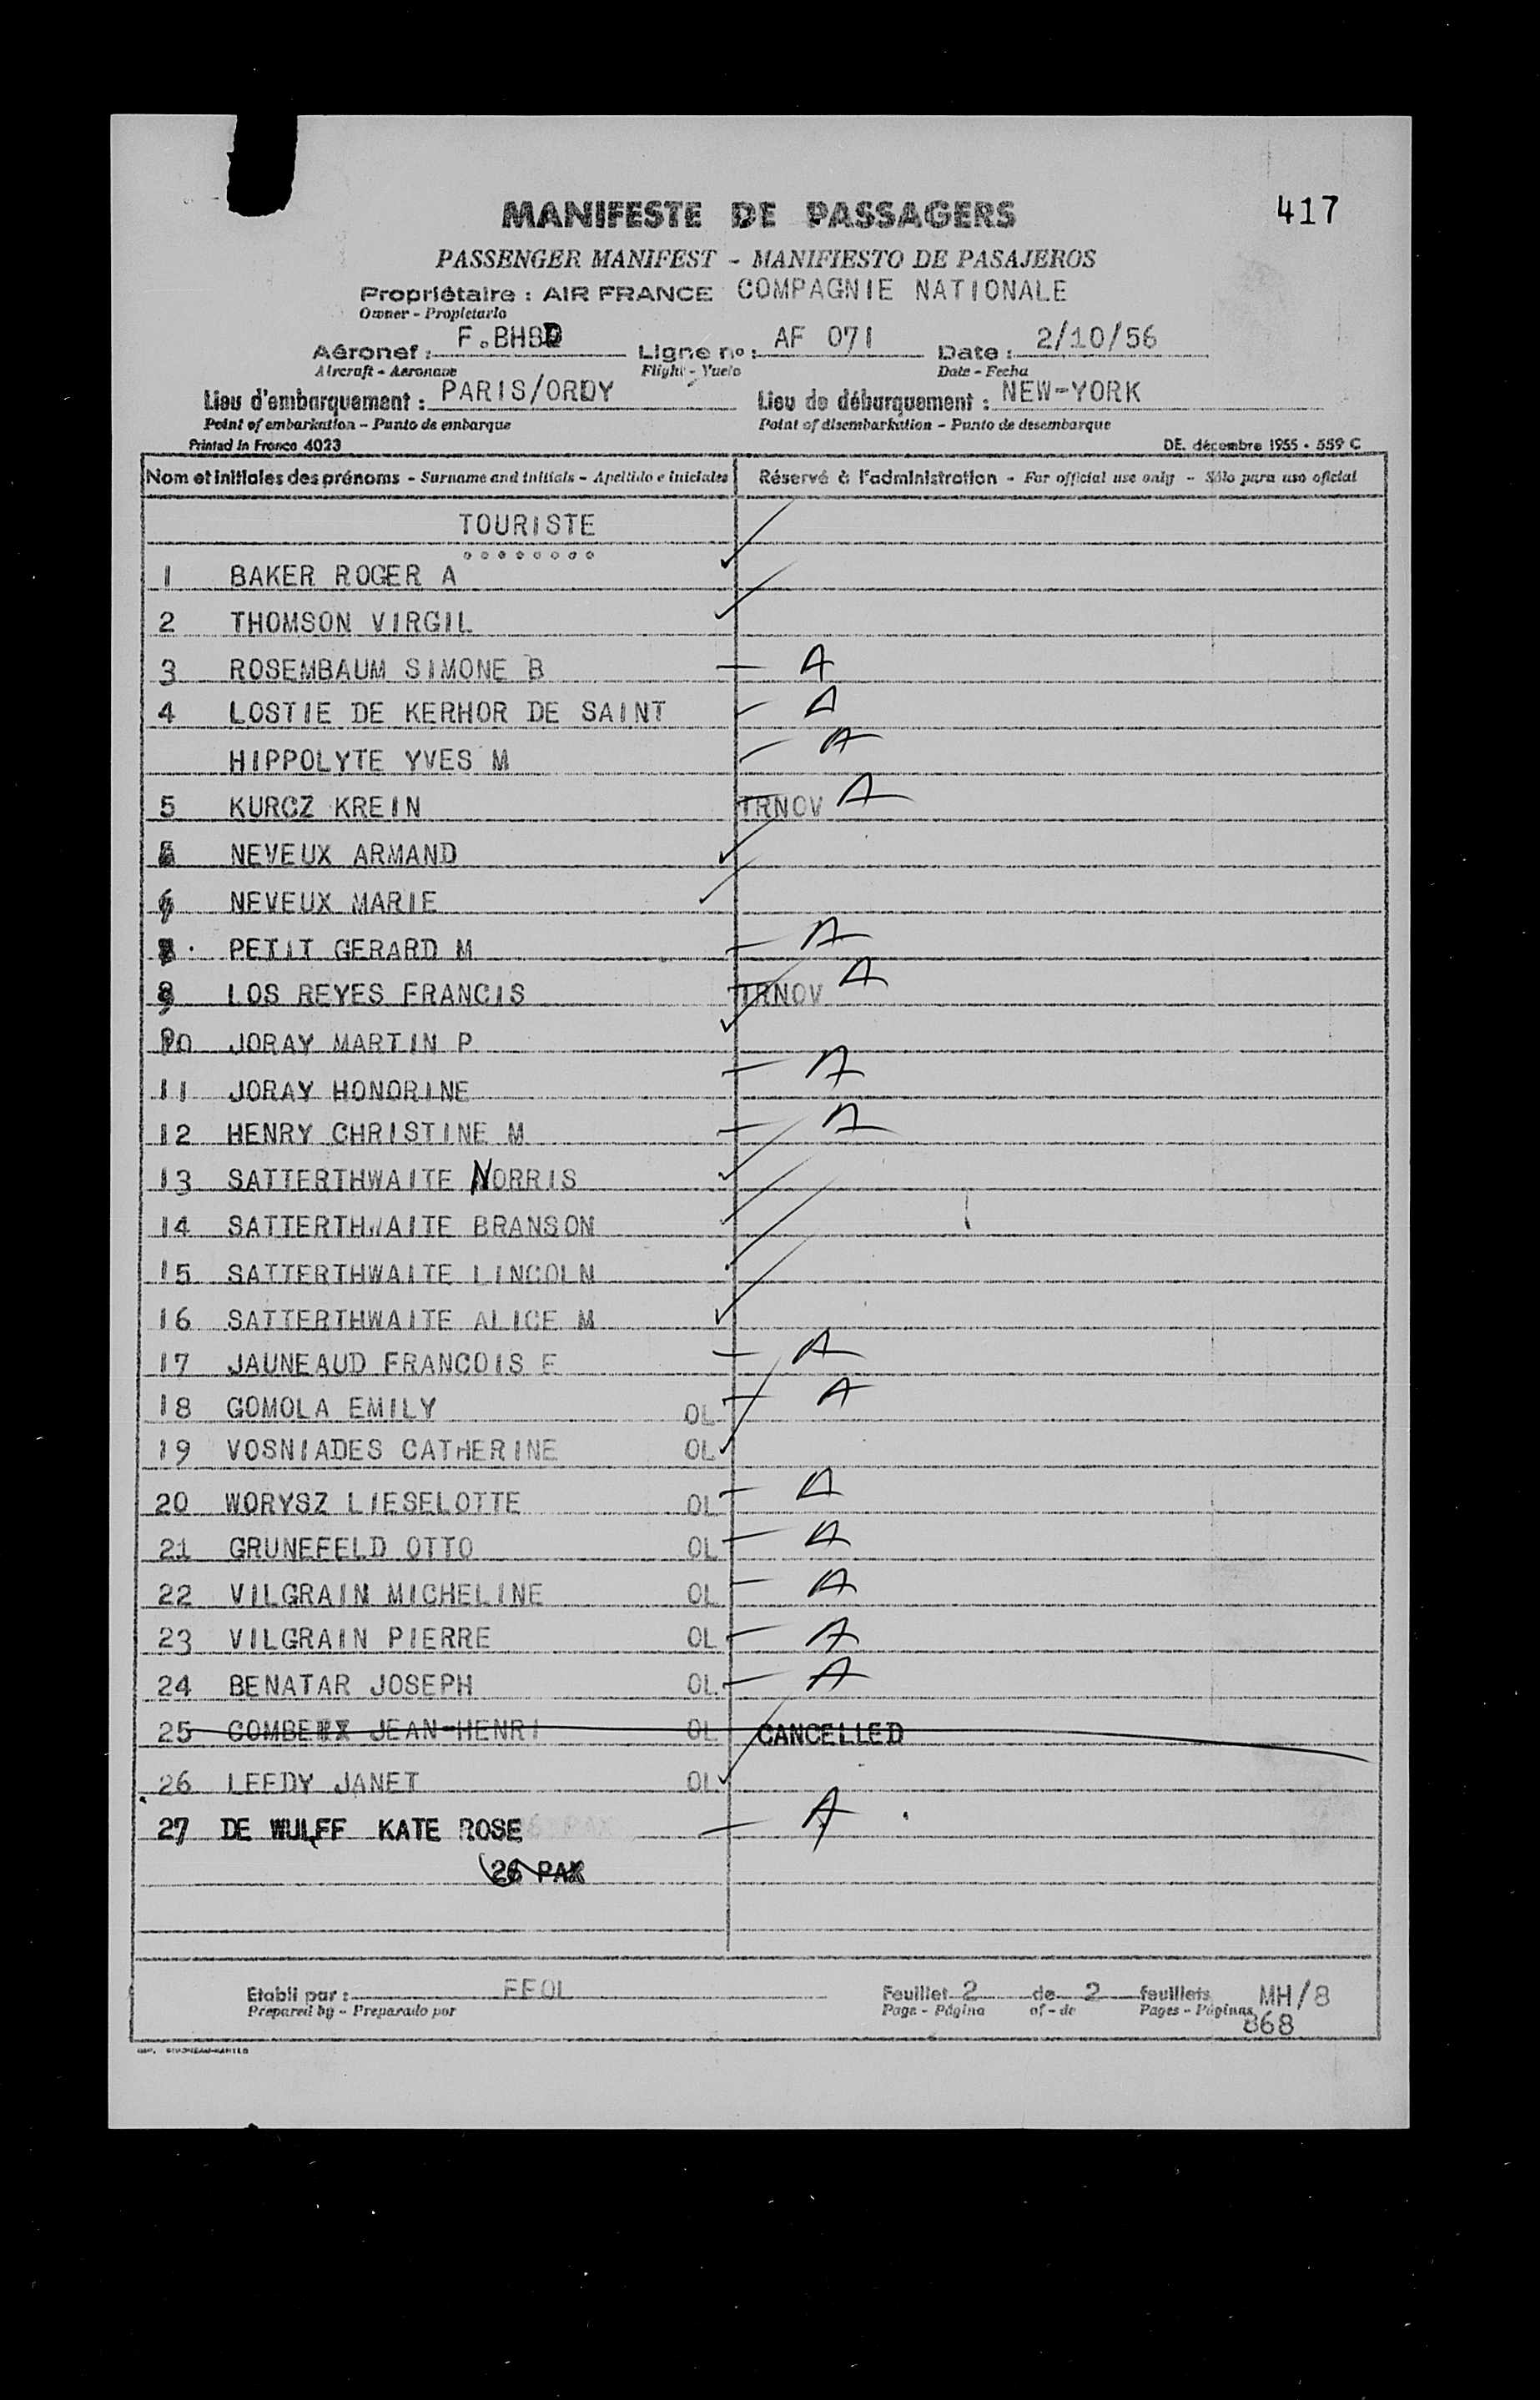 417
MANIFESTE DE PASSAGERS
PASSENGER MANIFEST - MANIFIESTO DE PASAJEROS
Propriétaire : AIR FRANCE COMPAGNIE NATIONALE
Owner - Propietario
Aéronef : F.BHBD Ligne no : AF 071 Date : 2/10/56
Aircraft - Aeronave Flight - Vuelo Date - Fecha
Lieu d'embarquement : PARIS/ORDY Lieu de débarquement : NEW-YORK
Point of embarkation - Punto de embarque Point of disembarkation - Punto de desembarque
Printed in France 4023 DE. décembre 1955 - 559 C
Nom et initiales des prénoms - Surname and initials - Apellido e iniciales Réservé à l'administration - For official use only - Sólo para uso oficial
TOURISTE
1 BAKER ROGER A
2 THOMSON VIRGIL
3 ROSEMBAUM SIMONE B A
4 LOSTIE DE KERHOR DE SAINT A
HIPPOLYTE YVES M A
5 KURCZ KREIN TRNOV A
NEVEUX ARMAND
NEVEUX MARIE
PETIT GERARD M A
LOS REYES FRANCIS TRNOV A
10 JORAY MARTIN P
11 JORAY HONORINE A
12 HENRY CHRISTINE M A
13 SATTERTHWAITE NORRIS
14 SATTERTHWAITE BRANSON
15 SATTERTHWAITE LINCOLN
16 SATTERTHWAITE ALICE M
17 JAUNEAUD FRANCOIS E A
18 GOMOLA EMILY OL A
19 VOSNIADES CATHERINE OL
20 WORYSZ LIESELOTTE OL A
21 GRUNEFELD OTTO OL A
22 VILGRAIN MICHELINE OL A
23 VILGRAIN PIERRE OL A
24 BENATAR JOSEPH OL A
25 JEAN-HENRI OL CANCELLED
26 LEEDY JANET OL
27 DE WULFF KATE ROSE A
26 PAX
Etabli par : FFOL Feuillet 2 de 2 feuillets MH/8
Prepared by - Preparado por Page - Página of - de Pages - Páginas 868